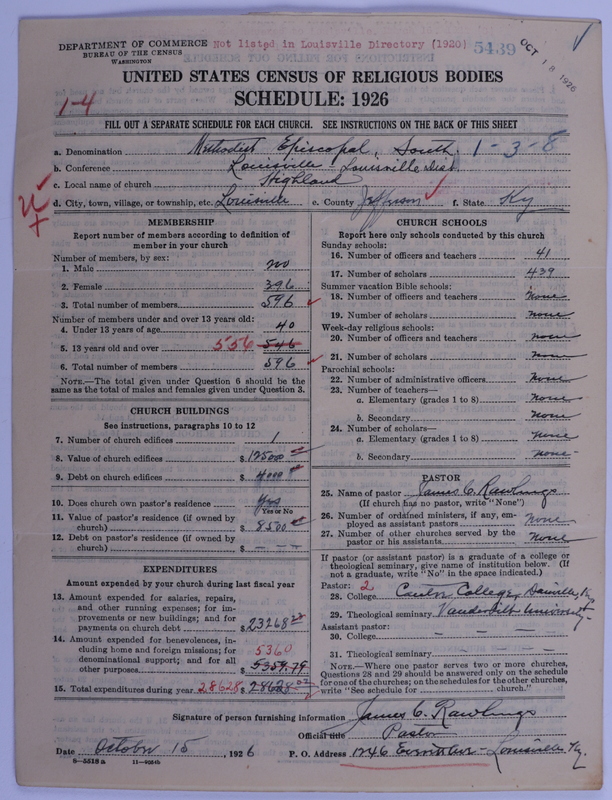 DEPARTMENT OF COMMERCE
BUREAU OF THE CENSUS
WASHINGTON
Not listed in Louisville Directory (1920)
5439
OCT 18 1926
UNITED STATES CENSUS OF RELIGIOUS BODIES
SCHEDULE: 1926
1-4
FILL OUT A SEPARATE SCHEDULE FOR EACH CHURCH. SEE INSTRUCTIONS ON THE BACK OF THIS SHEET
a. Denomination Methodist Episcopal, South 1-3-8
b. Conference Louisville, Louisville Dist.
c. Local name of church Highland
d. City, town, village, or township, etc. Louisville e. County Jefferson f. State Ky
MEMBERSHIP
Report number of members according to definition of member in your church
Number of members, by sex:
1. Male 200
2. Female 396
3. Total number of members 596
Number of members under and over 13 years old:
4. Under 13 years of age 40
5. 13 years old and over 556 546
6. Total number of members 596
NOTE.—The total given under Question 6 should be the
same as the total of males and females given under Question 3.
CHURCH BUILDINGS
See instructions, paragraphs 10 to 12
7. Number of church edifices 1
8. Value of church edifices $
9. Debt on church edifices $ 4000
10. Does church own pastor's residence Yes
Yes or No
11. Value of pastor's residence (if owned by
church) $ 8500
12. Debt on pastor's residence (if owned by
church) $ — —
EXPENDITURES
Amount expended by your church during last fiscal year
13. Amount expended for salaries, repairs,
and other running expenses; for im-
provements or new buildings; and for
payments on church debt $ 23268
14. Amount expended for benevolences, in-
cluding home and foreign missions; for
denominational support; and for all
other purposes 5360 $ 5359.79
15. Total expenditures during year 28628 $ 28628
CHURCH SCHOOLS
Report here only schools conducted by this church
Sunday schools:
16. Number of officers and teachers 41
17. Number of scholars 439
Summer vacation Bible schools:
18. Number of officers and teachers none
19. Number of scholars none
Week-day religious schools:
20. Number of officers and teachers none
21. Number of scholars none
Parochial schools:
22. Number of administrative officers none
23. Number of teachers—
a. Elementary (grades 1 to 8) none
b. Secondary none
24. Number of scholars—
a. Elementary (grades 1 to 8) none
b. Secondary none
PASTOR
25. Name of pastor James C. Rawlings
(If church has no pastor, write "None")
26. Number of ordained ministers, if any, em-
ployed as assistant pastors none
27. Number of other churches served by the
pastor or his assistants none
If pastor (or assistant pastor) is a graduate of a college or
theological seminary, give name of institution below. (If
not a graduate, write "No" in the space indicated.)
Pastor: 2
28. College College, Danville, Ky
29. Theological seminary Vanderbilt University
Assistant pastor:
30. College — — — —
31. Theological seminary — — —
NOTE.—Where one pastor serves two or more churches,
Questions 28 and 29 should be answered only on the schedule
for one of the churches; on the schedules for the other churches,
write "See schedule for church."
Signature of person furnishing information James C. Rawlings
Official title Pastor
Date October 15, 1926 P. O. Address 1246 Louisville Ky.
8—5518 a 11—9024b